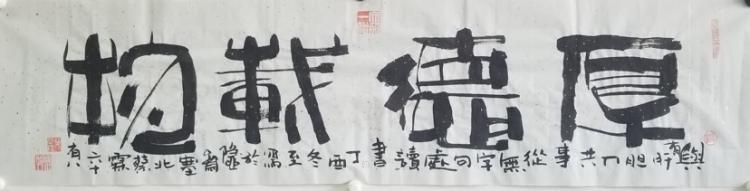 厚德載物
與有肝胆人共事從無字句處讀書丁酉冬至寫於塞北霖六十有八